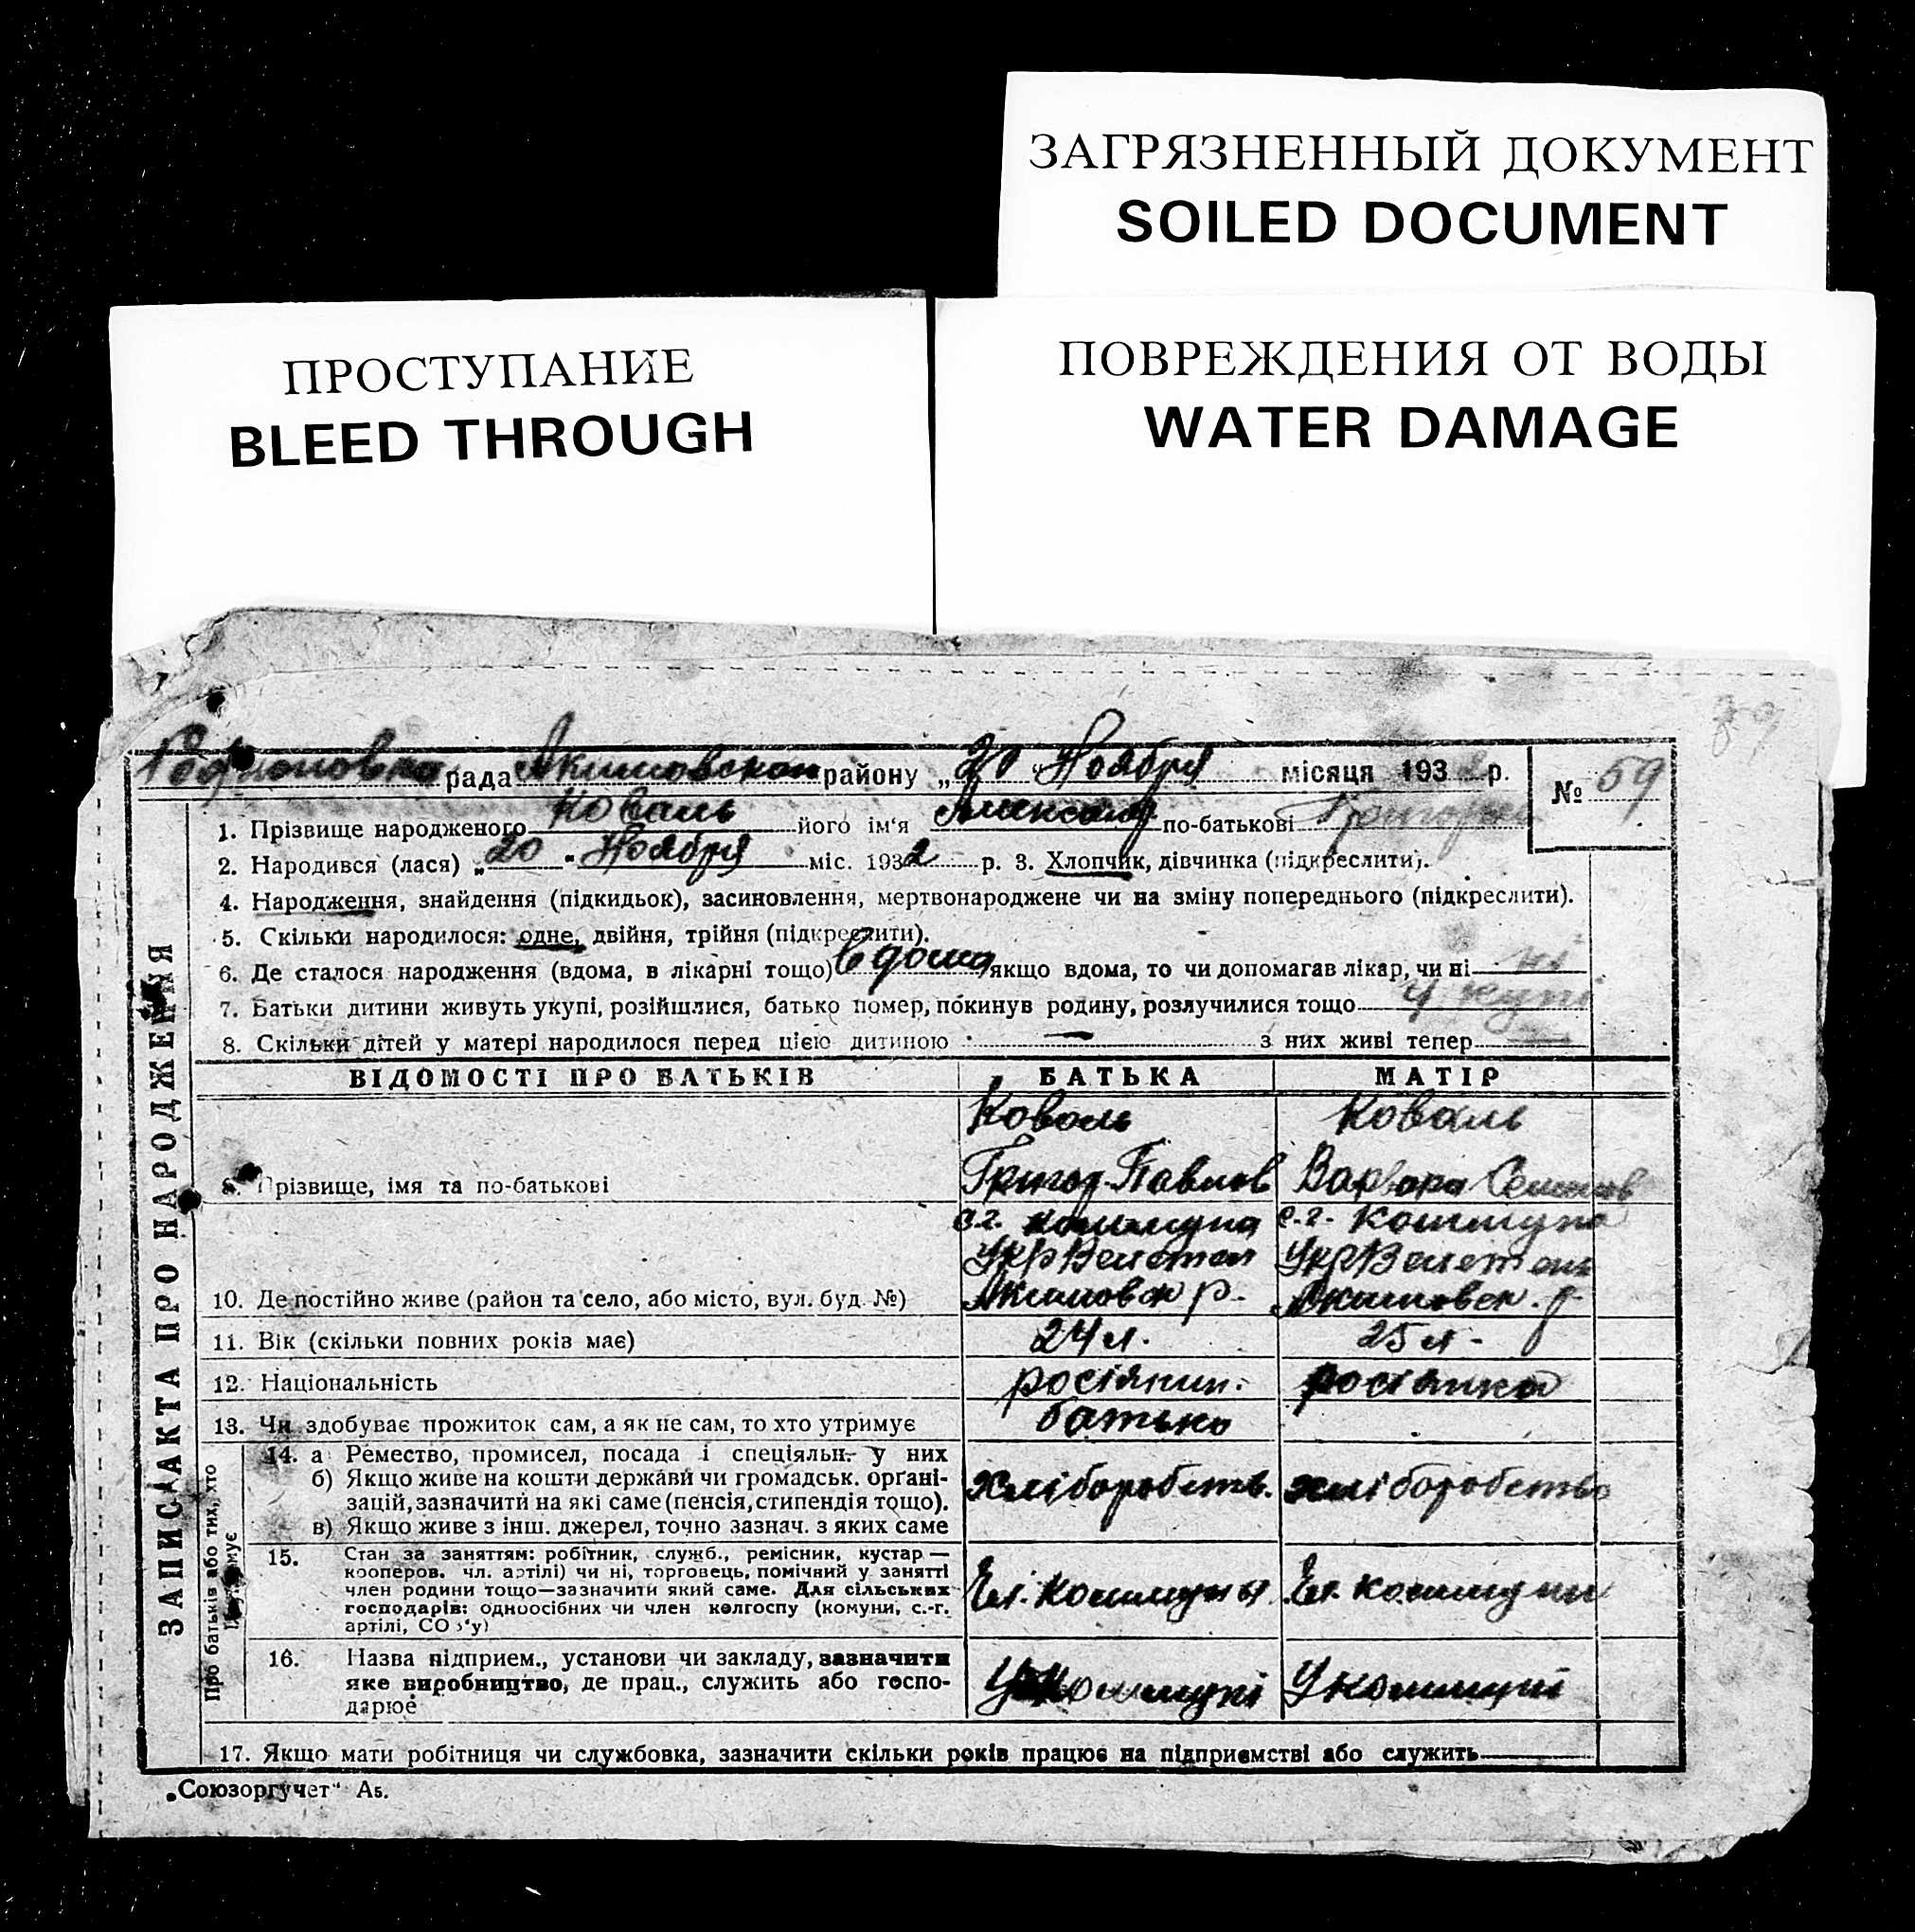 ЗАГРЯЗНЕННЫЙ ДОКУМЕНТ
SOILED DOCUMENT
ПРОСТУПАНИЕ
BLEED THROUGH
ПОВРЕЖДЕНИЯ ОТ ВОДЫ
WATER DAMAGE
рада Акимовском району „20" Ноября місяця 193 р.
№ 59
1. Прізвище народженого Коваль його ім'я по-батькові
2. Народився (лася) „20" Ноября міс. 1932 р. 3. Хлопчик, дівчинка (підкреслити).
4. Народження, знайдення (підкидьок), засиновлення, мертвонароджене чи на зміну попереднього (підкреслити).
5. Скільки народилося: одне, двійня, трійня (підкреслити).
6. Де сталося народження (вдома, в лікарні тощо) вдома якщо вдома, то чи допомагав лікар, чи ні ні
7. Батьки дитини живуть укупі, розійшлися, батько помер, покинув родину, розлучилися тощо у купі
8. Скільки дітей у матері народилося перед цією дитиною — з них живі тепер —
ЗАПИС АКТА ПРО НАРОДЖЕННЯ
ВІДОМОСТІ ПРО БАТЬКІВ БАТЬКА МАТІР
Коваль Коваль
9. Прізвище, імя та по-батькові Григор. Павлов Варвара Семенов
с.г. коммуна с.г. коммуна
10. Де постійно живе (район та село, або місто, вул. буд. №) Акимовск р. Акимовск. р.
11. Вік (скільки повних років має) 24 л. 25 л.
12. Національність росіянин. росіянка
13. Чи здобуває прожиток сам, а як не сам, то хто утримує батько
Про батьків або тих, хто
14. а Ремество, промисел, посада і спеціяльн. у них
б) Якщо живе на кошти держави чи громадськ. органі-
зацій, зазначити на які саме (пенсія, стипендія тощо). хліборобств. хліборобство
в) Якщо живе з інш. джерел, точно зазнач. з яких саме
15. Стан за заняттям: робітник, служб., ремісник, кустар —
кооперов. чл. артілі) чи ні, торговець, помічний у занятті
член родини тощо—зазначити який саме. Для сільських
господарів: одноосібних чи член колгоспу (комуни, с.-г.
артілі, СО
Чл. коммуны Чл. коммуни
16. Назва підприєм., установи чи закладу, зазначити
яке виробництво, де прац., служить або госпо-
дарює
У коммуні У коммуні
17. Якщо мати робітниця чи службовка, зазначити скільки років працює на підприємстві або служить
„Союзоргучет" А5.